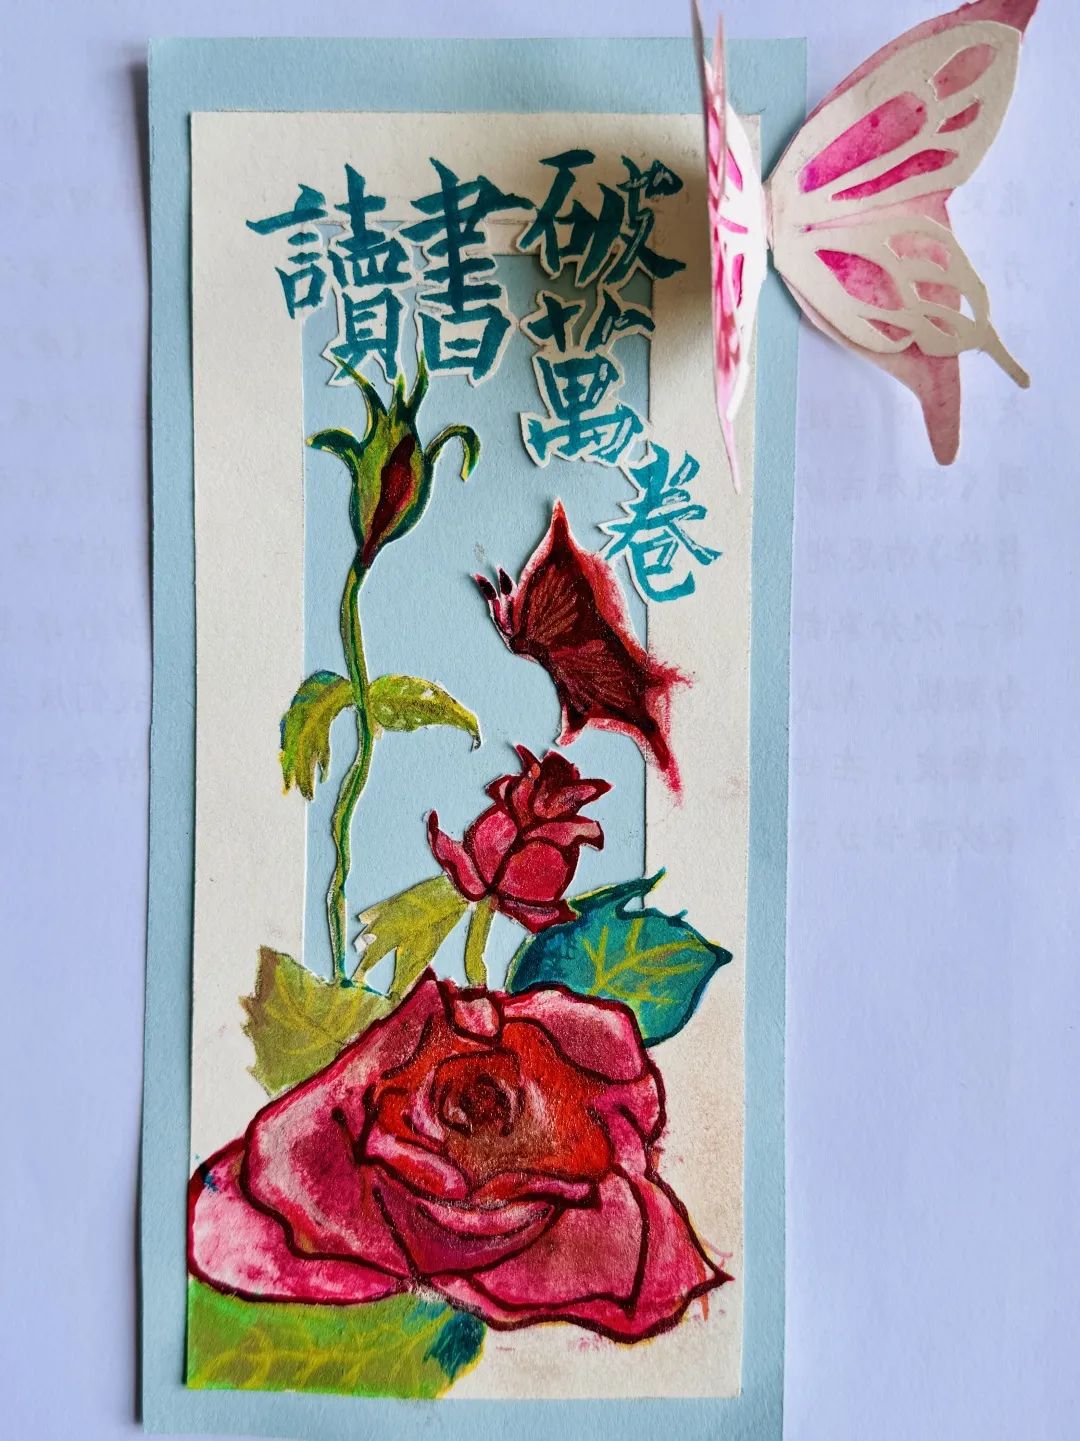 讀書破萬卷